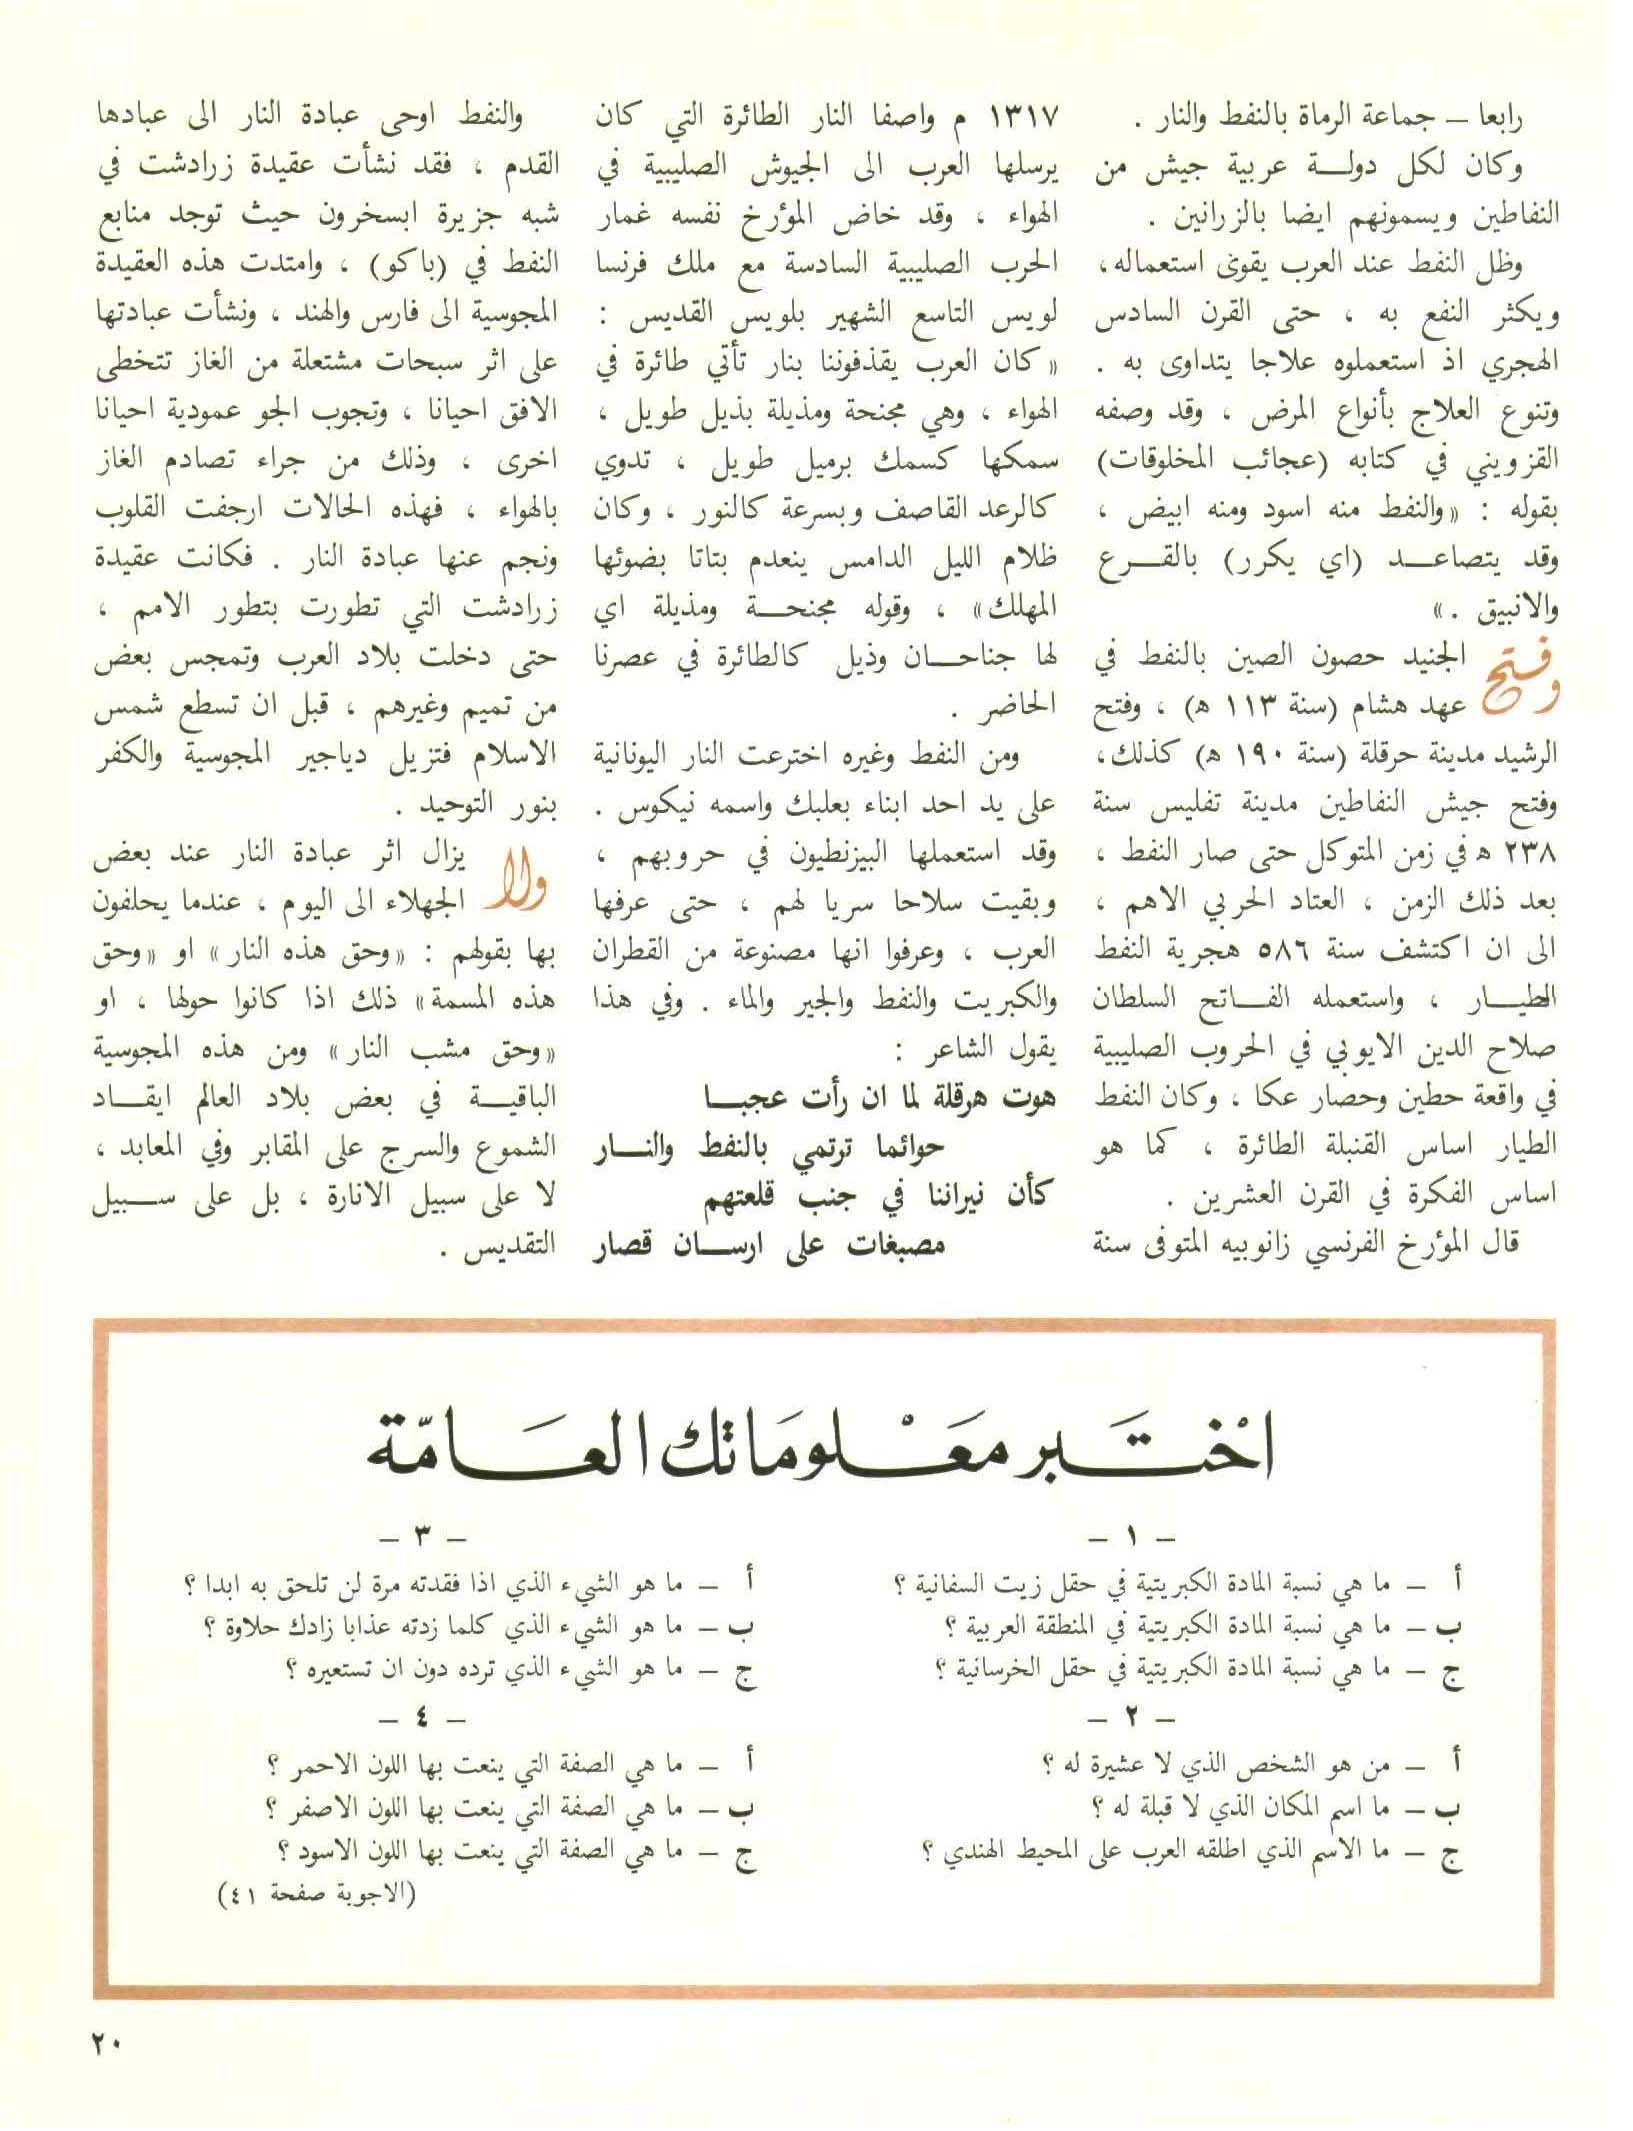 رابعا — جماعة الرماة بالنفط والنار .
وكان لكل دولة عربية جيش من
النفاطين ويسمونهم ايضا بالزرانين .
وظل النفط عند العرب يقوى استعماله،
ويكثر النفع به ، حتى القرن السادس
الهجري اذ استعملوه علاجا يتداوى به .
وتنوع العلاج بأنواع المرض ، وقد وصفه
القزويني في كتابه (عجائب المخلوقات)
بقوله : «والنفط منه اسود ومنه ابيض ،
وقد يتصاعد (اي يكرر) بالقرع
والانبيق .»
وفتح الجنيد حصون الصين بالنفط في
عهد هشام (سنة ١١٣ ه) ، وفتح
الرشيد مدينة حرقلة (سنة ١٩٠ ه) كذلك،
وفتح جيش النفاطين مدينة تفليس سنة
٢٣٨ ه في زمن المتوكل حتى صار النفط ،
بعد ذلك الزمن ، العتاد الحربي الاهم ،
الى ان اكتشف سنة ٥٨٦ هجرية النفط
الطيار ، واستعمله الفاتح السلطان
صلاح الدين الايوبي في الحروب الصليبية
في واقعة حطين وحصار عكا ، وكان النفط
الطيار اساس القنبلة الطائرة ، كما هو
اساس الفكرة في القرن العشرين .
قال المؤرخ الفرنسي زانوبيه المتوفى سنة
١٣١٧ م واصفا النار الطائرة التي كان
يرسلها العرب الى الجيوش الصليبية في
الهواء ، وقد خاض المؤرخ نفسه غمار
الحرب الصليبية السادسة مع ملك فرنسا
لويس التاسع الشهير بلويس القديس :
«كان العرب يقذفوننا بنار تأتي طائرة في
الهواء ، وهي مجنحة ومذيلة بذيل طويل ،
سمكها كسمك برميل طويل ، تدوي
كالرعد القاصف وبسرعة كالنور ، وكان
ظلام الليل الدامس ينعدم بتاتا بضوئها
المهلك» ، وقوله مجنحة ومذيلة اي
لها جناحان وذيل كالطائرة في عصرنا
الحاضر .
ومن النفط وغيره اخترعت النار اليونانية
على يد احد ابناء بعلبك واسمه نيكوس .
وقد استعملها البيزنطيون في حروبهم ،
وبقيت سلاحا سريا لهم ، حتى عرفها
العرب ، وعرفوا انها مصنوعة من القطران
والكبريت والنفط والجير والماء . وفي هذا
يقول الشاعر :
هوت هرقلة لما ان رأت عجبا
حوائما ترتمي بالنفط والنار
كأن نيراننا في جنب قلعتهم
مصبغات على ارسان قصار
والنفط اوحى عبادة النار الى عبادها
القدم ، فقد نشأت عقيدة زرادشت في
شبه جزيرة ابسخرون حيث توجد منابع
النفط في (باكو) ، وامتدت هذه العقيدة
المجوسية الى فارس والهند ، ونشأت عبادتها
على اثر سبحات مشتعلة من الغاز تتخطى
الافق احيانا ، وتجوب الجو عمودية احيانا
اخرى ، وذلك من جراء تصادم الغاز
بالهواء ، فهذه الحالات ارجفت القلوب
ونجم عنها عبادة النار . فكانت عقيدة
زرادشت التي تطورت بتطور الامم ،
حتى دخلت بلاد العرب وتمجس بعض
من تميم وغيرهم ، قبل ان تسطع شمس
الاسلام فتزيل دياجير المجوسية والكفر
بنور التوحيد .
ولا يزال اثر عبادة النار عند بعض
الجهلاء الى اليوم ، عندما يحلفون
بها بقولهم : «وحق هذه النار» او «وحق
هذه المسمة» ذلك اذا كانوا حولها ، او
«وحق مشب النار» ومن هذه المجوسية
الباقية في بعض بلاد العالم ايقاد
الشموع والسرج على المقابر وفي المعابد ،
لا على سبيل الانارة ، بل على سبيل
التقديس .
اخْتَبر مَعْلومَاتك العَامّة
— ١ —
أ — ما هي نسبة المادة الكبريتية في حقل زيت السفانية ؟
ب — ما هي نسبة المادة الكبريتية في المنطقة العربية ؟
ج — ما هي نسبة المادة الكبريتية في حقل الخرسانية ؟
— ٢ —
أ — من هو الشخص الذي لا عشيرة له ؟
ب — ما اسم المكان الذي لا قبلة له ؟
ج — ما الاسم الذي اطلقه العرب على المحيط الهندي ؟
— ٣ —
أ — ما هو الشيء الذي اذا فقدته مرة لن تلحق به ابدا ؟
ب — ما هو الشيء الذي كلما زدته عذابا زادك حلاوة ؟
ج — ما هو الشيء الذي ترده دون ان تستعيره ؟
— ٤ —
أ — ما هي الصفة التي ينعت بها اللون الاحمر ؟
ب — ما هي الصفة التي ينعت بها اللون الاصفر ؟
ج — ما هي الصفة التي ينعت بها اللون الاسود ؟
(الاجوبة صفحة ٤١)
٢٠